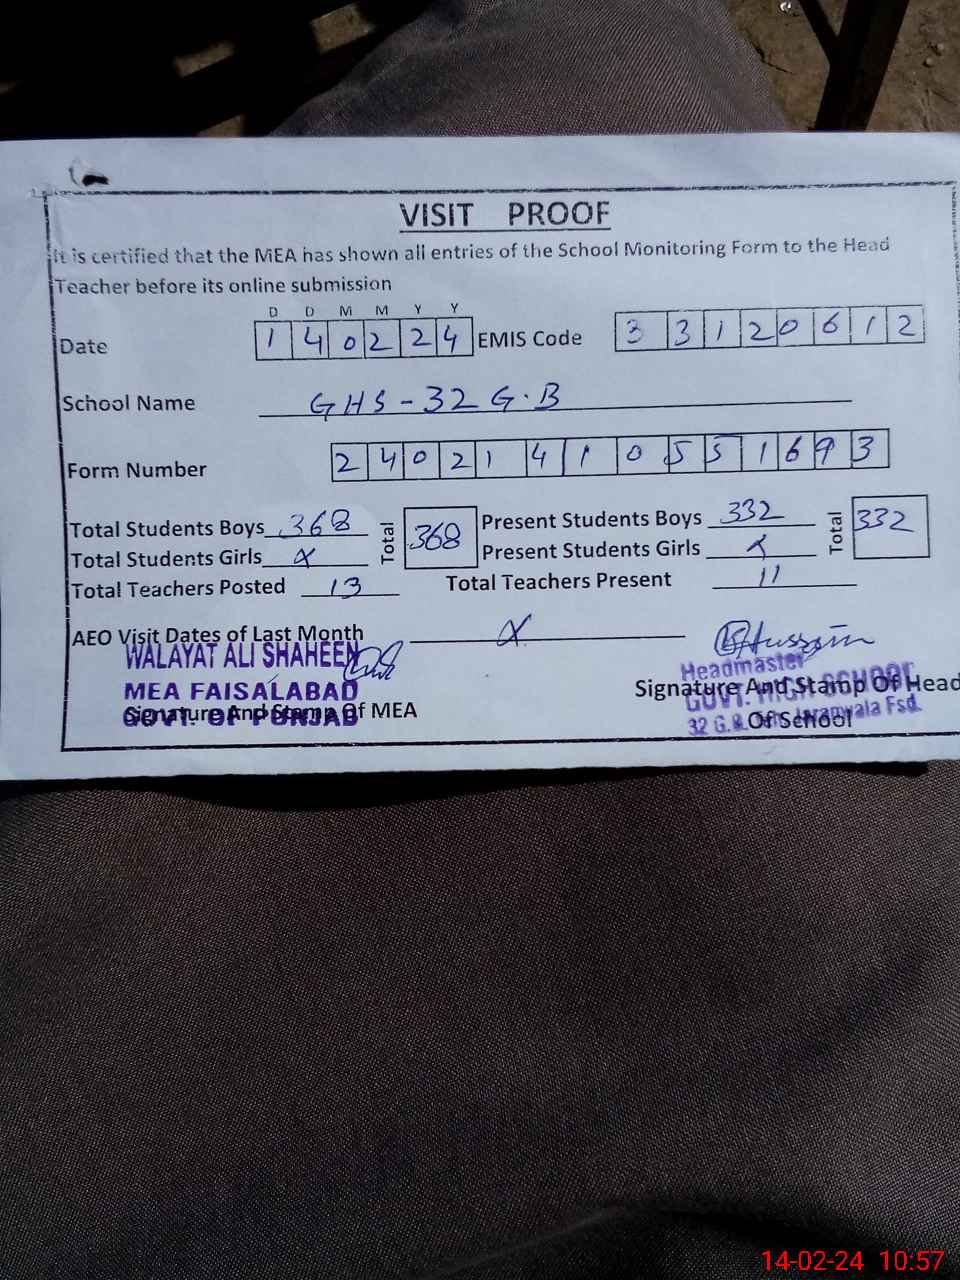 VISIT PROOF
It is certified that the MEA has shown all entries of the School Monitoring Form to the Head
Teacher before its online submission
D D M M Y Y
Date 1 4 0 2 2 4 EMIS Code 3 3 1 2 0 6 1 2
School Name GHS-32 G.B
Form Number 2 4 0 2 1 4 1 0 5 5 1 6 9 3
Total Students Boys 368 Total 368 Present Students Boys 332 Total 332
Total Students Girls x Present Students Girls x
Total Teachers Posted 13 Total Teachers Present 11
AEO Visit Dates of Last Month x
WALAYAT ALI SHAHEEN
MEA FAISALABAD
GOVT. OF PUNJAB
Signature And Stamp Of MEA
Hussain
Headmaster
GOVT. HIGH SCHOOL
32 G.B. Jaranwala Fsd.
Signature And Stamp Of Head
Of School
14-02-24 10:57